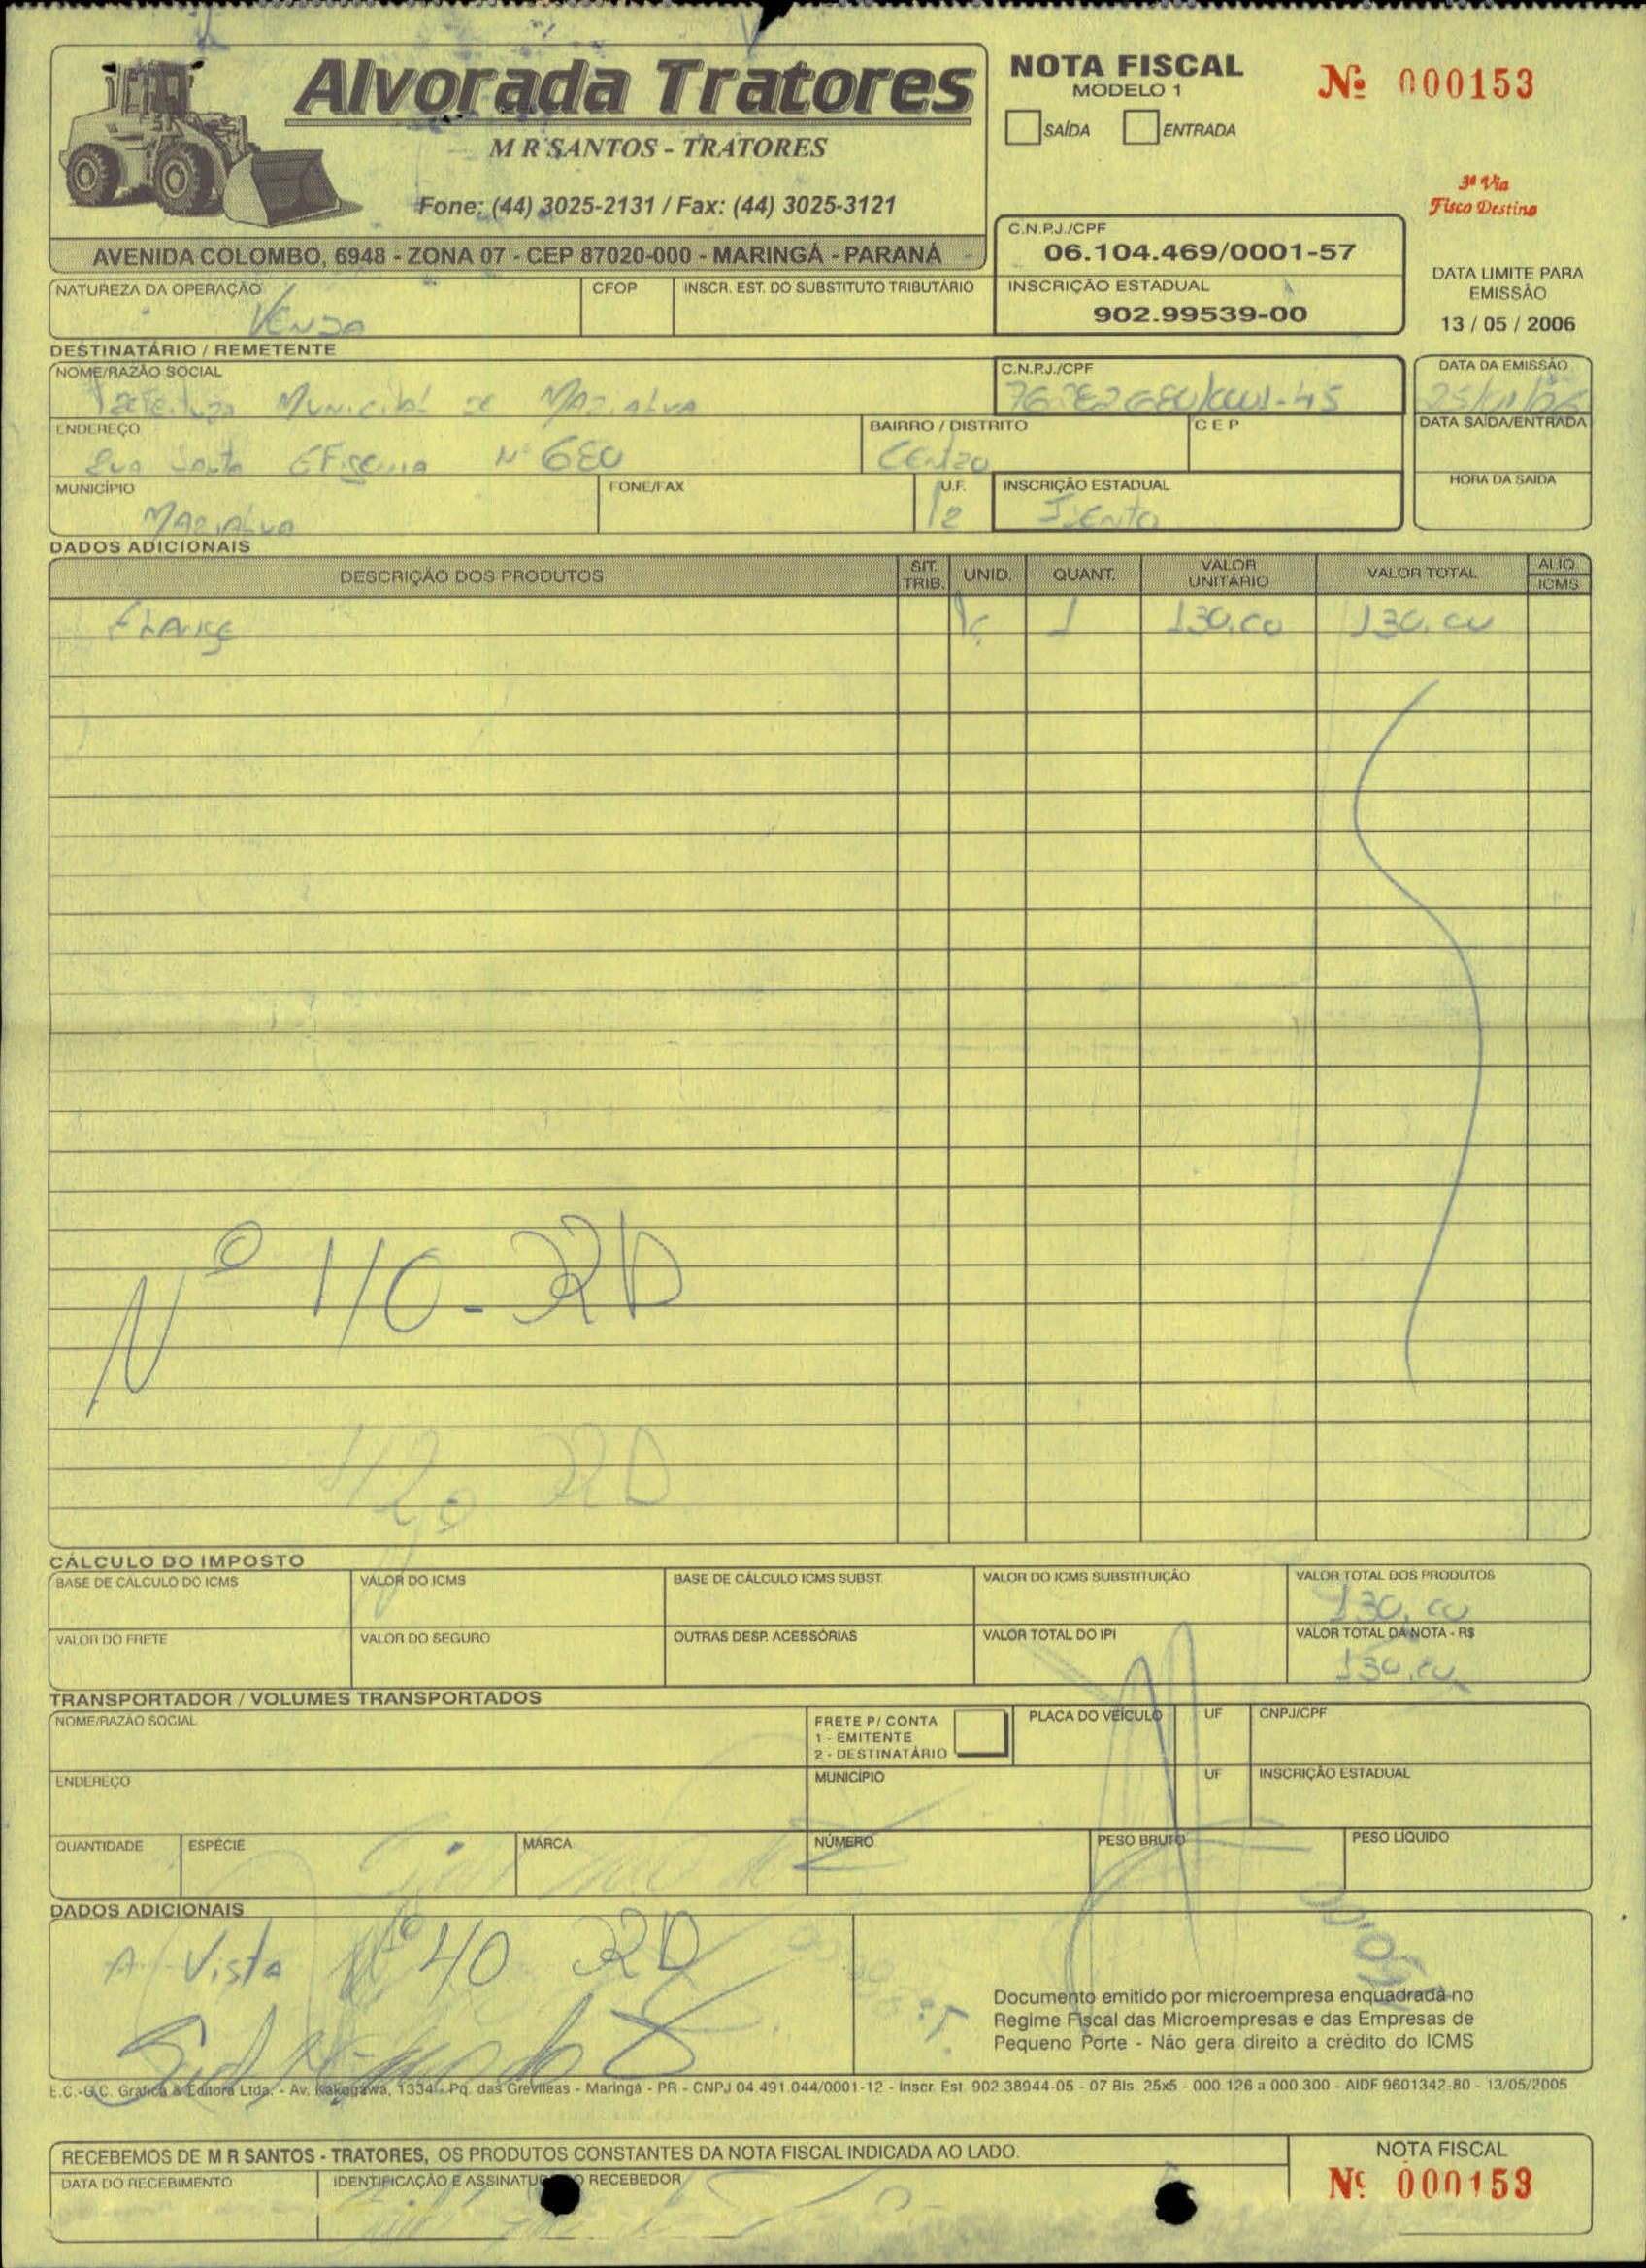 Alvorada Tratores
M R SANTOS - TRATORES
Fone: (44) 3025-2131 / Fax: (44) 3025-3121
AVENIDA COLOMBO, 6948 - ZONA 07 - CEP 87020-000 - MARINGÁ - PARANÁ
NOTA FISCAL
MODELO 1
Nº 000153
SAÍDA ENTRADA
3ª Via
Fisco Destino
C.N.P.J./CPF
06.104.469/0001-57
INSCRIÇÃO ESTADUAL
902.99539-00
DATA LIMITE PARA
EMISSÃO
13 / 05 / 2006
NATUREZA DA OPERAÇÃO CFOP INSCR. EST. DO SUBSTITUTO TRIBUTÁRIO
Venda
DESTINATÁRIO / REMETENTE
NOME/RAZÃO SOCIAL C.N.P.J./CPF DATA DA EMISSÃO
Prefeitura Municipal de Marialva 76282680/0001-45 25/01/06
ENDEREÇO BAIRRO / DISTRITO CEP DATA SAÍDA/ENTRADA
Rua Santa Efigenia Nº 680 Centro
MUNICÍPIO FONE/FAX U.F. INSCRIÇÃO ESTADUAL HORA DA SAÍDA
Marialva Pr Isento
DADOS ADICIONAIS
DESCRIÇÃO DOS PRODUTOS SIT. TRIB. UNID. QUANT. VALOR UNITÁRIO VALOR TOTAL ALIQ. ICMS
Flange Pç 1 130,00 130,00
Nº 40 - RD
40 RD
CÁLCULO DO IMPOSTO
BASE DE CÁLCULO DO ICMS VALOR DO ICMS BASE DE CÁLCULO ICMS SUBST. VALOR DO ICMS SUBSTITUIÇÃO VALOR TOTAL DOS PRODUTOS
130,00
VALOR DO FRETE VALOR DO SEGURO OUTRAS DESP. ACESSÓRIAS VALOR TOTAL DO IPI VALOR TOTAL DA NOTA - R$
130,00
TRANSPORTADOR / VOLUMES TRANSPORTADOS
NOME/RAZÃO SOCIAL FRETE P/ CONTA PLACA DO VEÍCULO UF CNPJ/CPF
1 - EMITENTE
2 - DESTINATÁRIO
ENDEREÇO MUNICÍPIO UF INSCRIÇÃO ESTADUAL
QUANTIDADE ESPÉCIE MARCA NÚMERO PESO BRUTO PESO LÍQUIDO
DADOS ADICIONAIS
A Vista Nº 40 RD
Documento emitido por microempresa enquadrada no
Regime Fiscal das Microempresas e das Empresas de
Pequeno Porte - Não gera direito a crédito do ICMS
E.C.-G.C. Gráfica & Editora Ltda. - Av. Kakogawa, 1334 - Pq. das Grevíleas - Maringá - PR - CNPJ 04.491.044/0001-12 - Inscr. Est. 902.38944-05 - 07 Bls. 25x5 - 000.126 a 000.300 - AIDF 9601342-80 - 13/05/2005
RECEBEMOS DE M R SANTOS - TRATORES, OS PRODUTOS CONSTANTES DA NOTA FISCAL INDICADA AO LADO.
DATA DO RECEBIMENTO IDENTIFICAÇÃO E ASSINATURA DO RECEBEDOR
NOTA FISCAL
Nº 000153